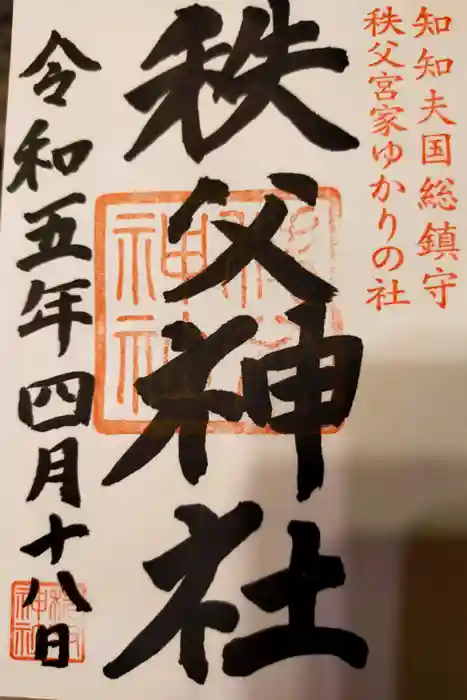 知知夫国総鎮守
秩父宮家ゆかりの社
秩父神社
令和五年四月十八日
秩父神社
秩父神社